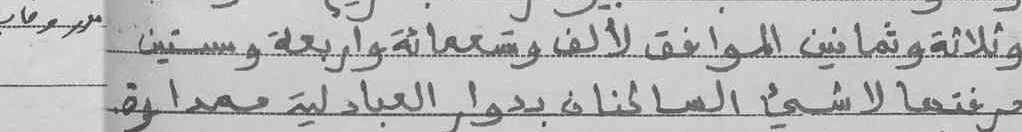 وثلاثة وثمانين الموافق لألف وتسعمائة واربعة وستين
حرفتهما لا شيئ الساكنان بدوار العبادلية